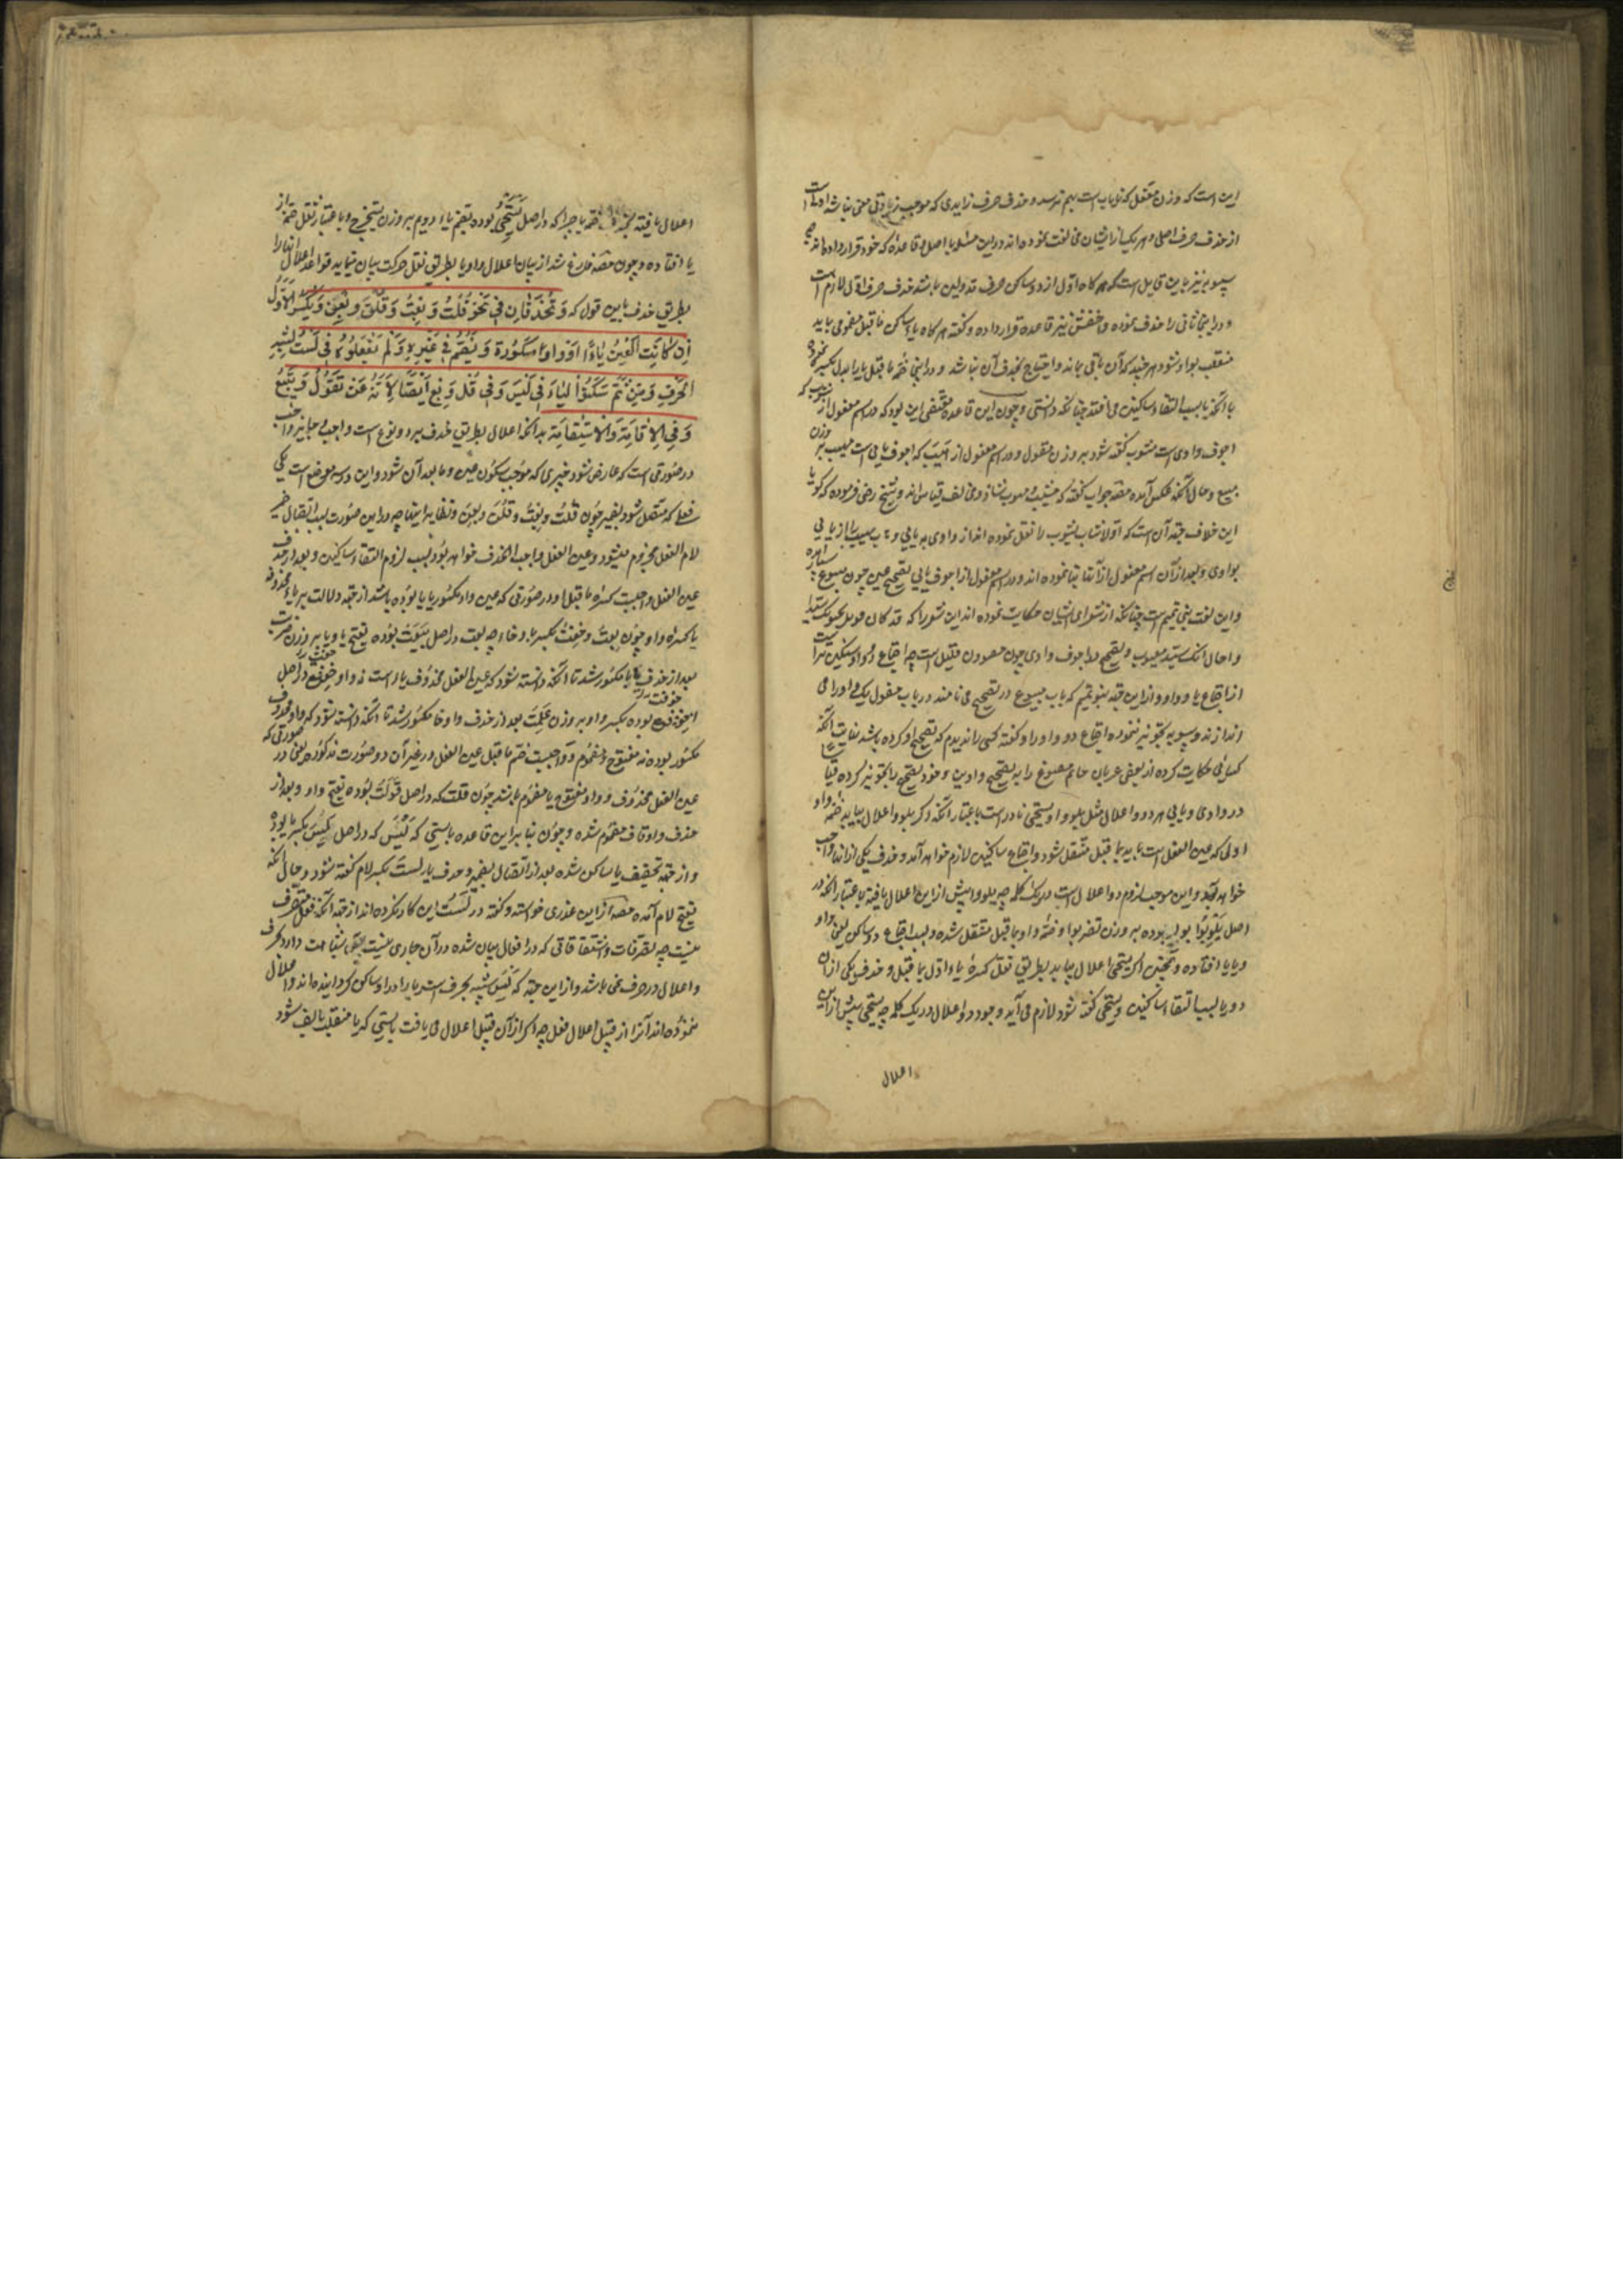 این است که وزن مفعل که نایاب است بهم نرسد و حذف حرف زایدی که موجب زیادتی معنی نباشد اولی است
از حذف حرف اصلی و هر یک از ایشان مخالفت نموده اند در این مسئله با اصل و قاعدهٔ که خود قرار داده اند چه
سیبویه نیز باین قایل است که هر کاه اول از دو ساکن حرف مد ولین باشد حذف حرف اول لازم است
و در اینجا ثانی را حذف نموده و اخفش نیز قاعده قرار داده و کفته هر کاه یاء ساکن ما قبل مضمومی بیاید
منقلب بواو شود هر چند که آن باقی نماند و احتیاج بحذف آن باشد و در اینجا ضمهٔ ما قبل یا را بدل بکسره نموده
با آنکه یا بسبب التقاء ساکنین می افتد چنانکه دانستی و چون این قاعده مقتضی این بود که در اسم مفعول از
اجوف واوی است مشوب کفته شود بر وزن مقول و در اسم مفعول از اهیب که اجوف یایی است مهیب بر وزن
مبیع و حال آنکه عکس آمده مصنف جواب کفته که مشیب و مهوب شاذ و مخالف قیاس اند و شیخ رضی فرموده که کویا
این خلاف جهة آن است که اولا شاب یشوب را نقل نموده اند از واوی به یایی و یایی
بواوی و بعد از آن اسم مفعول از آنها بنا نموده اند و در اسم مفعول از اجوف یایی تصحیح عین چون مبیوع
و این لغت بنی تمیم است چنانکه از شعرای ایشان حکایت نموده اند این شعر را که قد کان قومک یحسبونک سیدا
و اخال انک سید معیوب و تصحیح در اجوف واوی چون مصوون قلیل است چه اجتماع دو واو سنکین تر است
از اجتماع یا و واو و از این جهة بنو تمیم که باب مبیوع در تصحیح می نامند در باب مقول یک واو را می
اندازند و سیبویه تجویز ننموده اجتماع دو واو را و کفته کسی را ندیدم که تصحیح او کرده باشد نهایت آنکه
کسائی حکایت کرده از بعضی عربان خاتم مصووغ را به تصحیح واوین و خود تصحیح را تجویز کرده قیاسا
در واوی و یایی هر دو و اعلال مثل یلوو او یستحیی نادر است باعتبار آنکه اکر یلوو اعلال بیابد ضمهٔ واو
اولی که عین الفعل است باید بما قبل منتقل شود و اجتماع ساکنین لازم خواهد آمد و حذف یکی از آنها واجب
خواهد آمد و این موجب لزوم دو اعلال است در یک کلمه چه یلوو پیش از این اعلال یافته باعتبار آنکه در
اصل یلویوا بوده بر وزن تضربوا و ضمهٔ واو بما قبل منتقل شده و بسبب اجتماع دو ساکن یعنی واو
و یا یا افتاده و همچنین اکر یستحیی اعلال بیابد بطریق نقل کسرهٔ یاء اول بما قبل و حذف یکی از آن
دو یا بسبب التقاء ساکنین و یستحی کفته شود لازم می آید وجود دو اعلال در یک کلمه چه یستحیی پیش از این
اعلال
اعلال یافته بحذف ضمه یا چرا که در اصل یستحیی بوده بضم یاء دویم بر وزن یستخرج و باعتبار ثقل ضمه از
یا افتاده و چون مصنف فارغ شد از بیان اعلال واو یا بطریق نقل حرکت بیان می نماید قواعد اعلال آنها را
بطریق حذف باین قول که وَتُحْذَفَانِ فِی نَحْوِ قُلْتُ وَبِعْتُ وَقُلْنَ وَبِعْنَ وَیُکْسَرُ الْاَوَّلُ
اِنْ کَانَتِ الْعَیْنُ یَاءً اَوْ وَاوًا مَکْسُورَةً وَیُضَمُّ فِی غَیْرِهِ وَلَمْ یَفْعَلُوهُ فِی لَسْتُ لِشِبْهِ
الْحَرْفِ وَمِنْ ثَمَّ سَکَّنُوا الْیَاءَ فِی لَیْسَ وَفِی قُلْ وَبِعْ اَیْضًا لِاَنَّهُ عَنْ تَقُولُ وَتَبِیعُ
وَفِی الْاِقَامَةِ وَالْاِسْتِقَامَةِ بدانکه اعلال بطریق حذف بر دو نوع است واجب و جایز واجب
در صورتی است که عارض شود چیزی که موجب سکون عین و ما بعد آن شود و این در سه موضع است یکی
فعلی که متصل شود بضمیر چون قلت و بعت و قلن و بعن و نظایر اینها چه در این صورت بسبب اتصال ضمیر
لام الفعل مجزوم میشود و عین الفعل واجب الحذف خواهد بود بسبب لزوم التقاء ساکنین و بعد از حذف
عین الفعل واجبست کسرهٔ ما قبل او در صورتی که عین واو مکسور یا یا بوده باشد از جهة دلالت بر یاء محذوفه
یا کسرهٔ واو چون بعت و خفت بکسر با و خاء چه بعت در اصل بیعت بوده بفتح یا و با بر وزن ضربت
بعد از حذف یا با مکسور شد تا آنکه دانسته شود که عین الفعل محذوف یاء است نه واو و خفت در اصل
خوفت بوده بکسر واو بر وزن علمت بعد از حذف واو خا مکسور شد تا آنکه دانسته شود که واو محذوف
مکسور بوده نه مفتوح و مضموم و واجبست ضم ما قبل عین الفعل در غیر آن دو صورت مذکوره یعنی در صورتی که
عین الفعل محذوف و واو مفتوح یا مضموم باشد چون قلت که در اصل قولت بوده بفتح واو و بعد از
حذف واو قاف مضموم شده و چون بنابراین قاعده بایستی که لیس که در اصل لیس بکسر یا بوده
و از جهة تخفیف یا ساکن شده بعد از اتصال بضمیر و حذف یا لست بکسر لام کفته شود و حال آنکه
بفتح لام آمده مصنف از این عذری خواسته و کفته در لست این کار نکرده اند از جهة آنکه فعل متصرف
نیست چه تصرفات و اشتقاقاتی که در افعال بیان شده در آن جاری نیست بلکه مشابهت دارد بحرف
و اعلال در حرف نمی باشد و از این جهة که لیس شبیه بحرف است یا را در او ساکن کردانیده اند و اعلال
ننموده اند آنرا از قبیل اعلال فعل چه اکر از آن قبیل اعلال می یافت بایستی که یا منقلب بالف شود